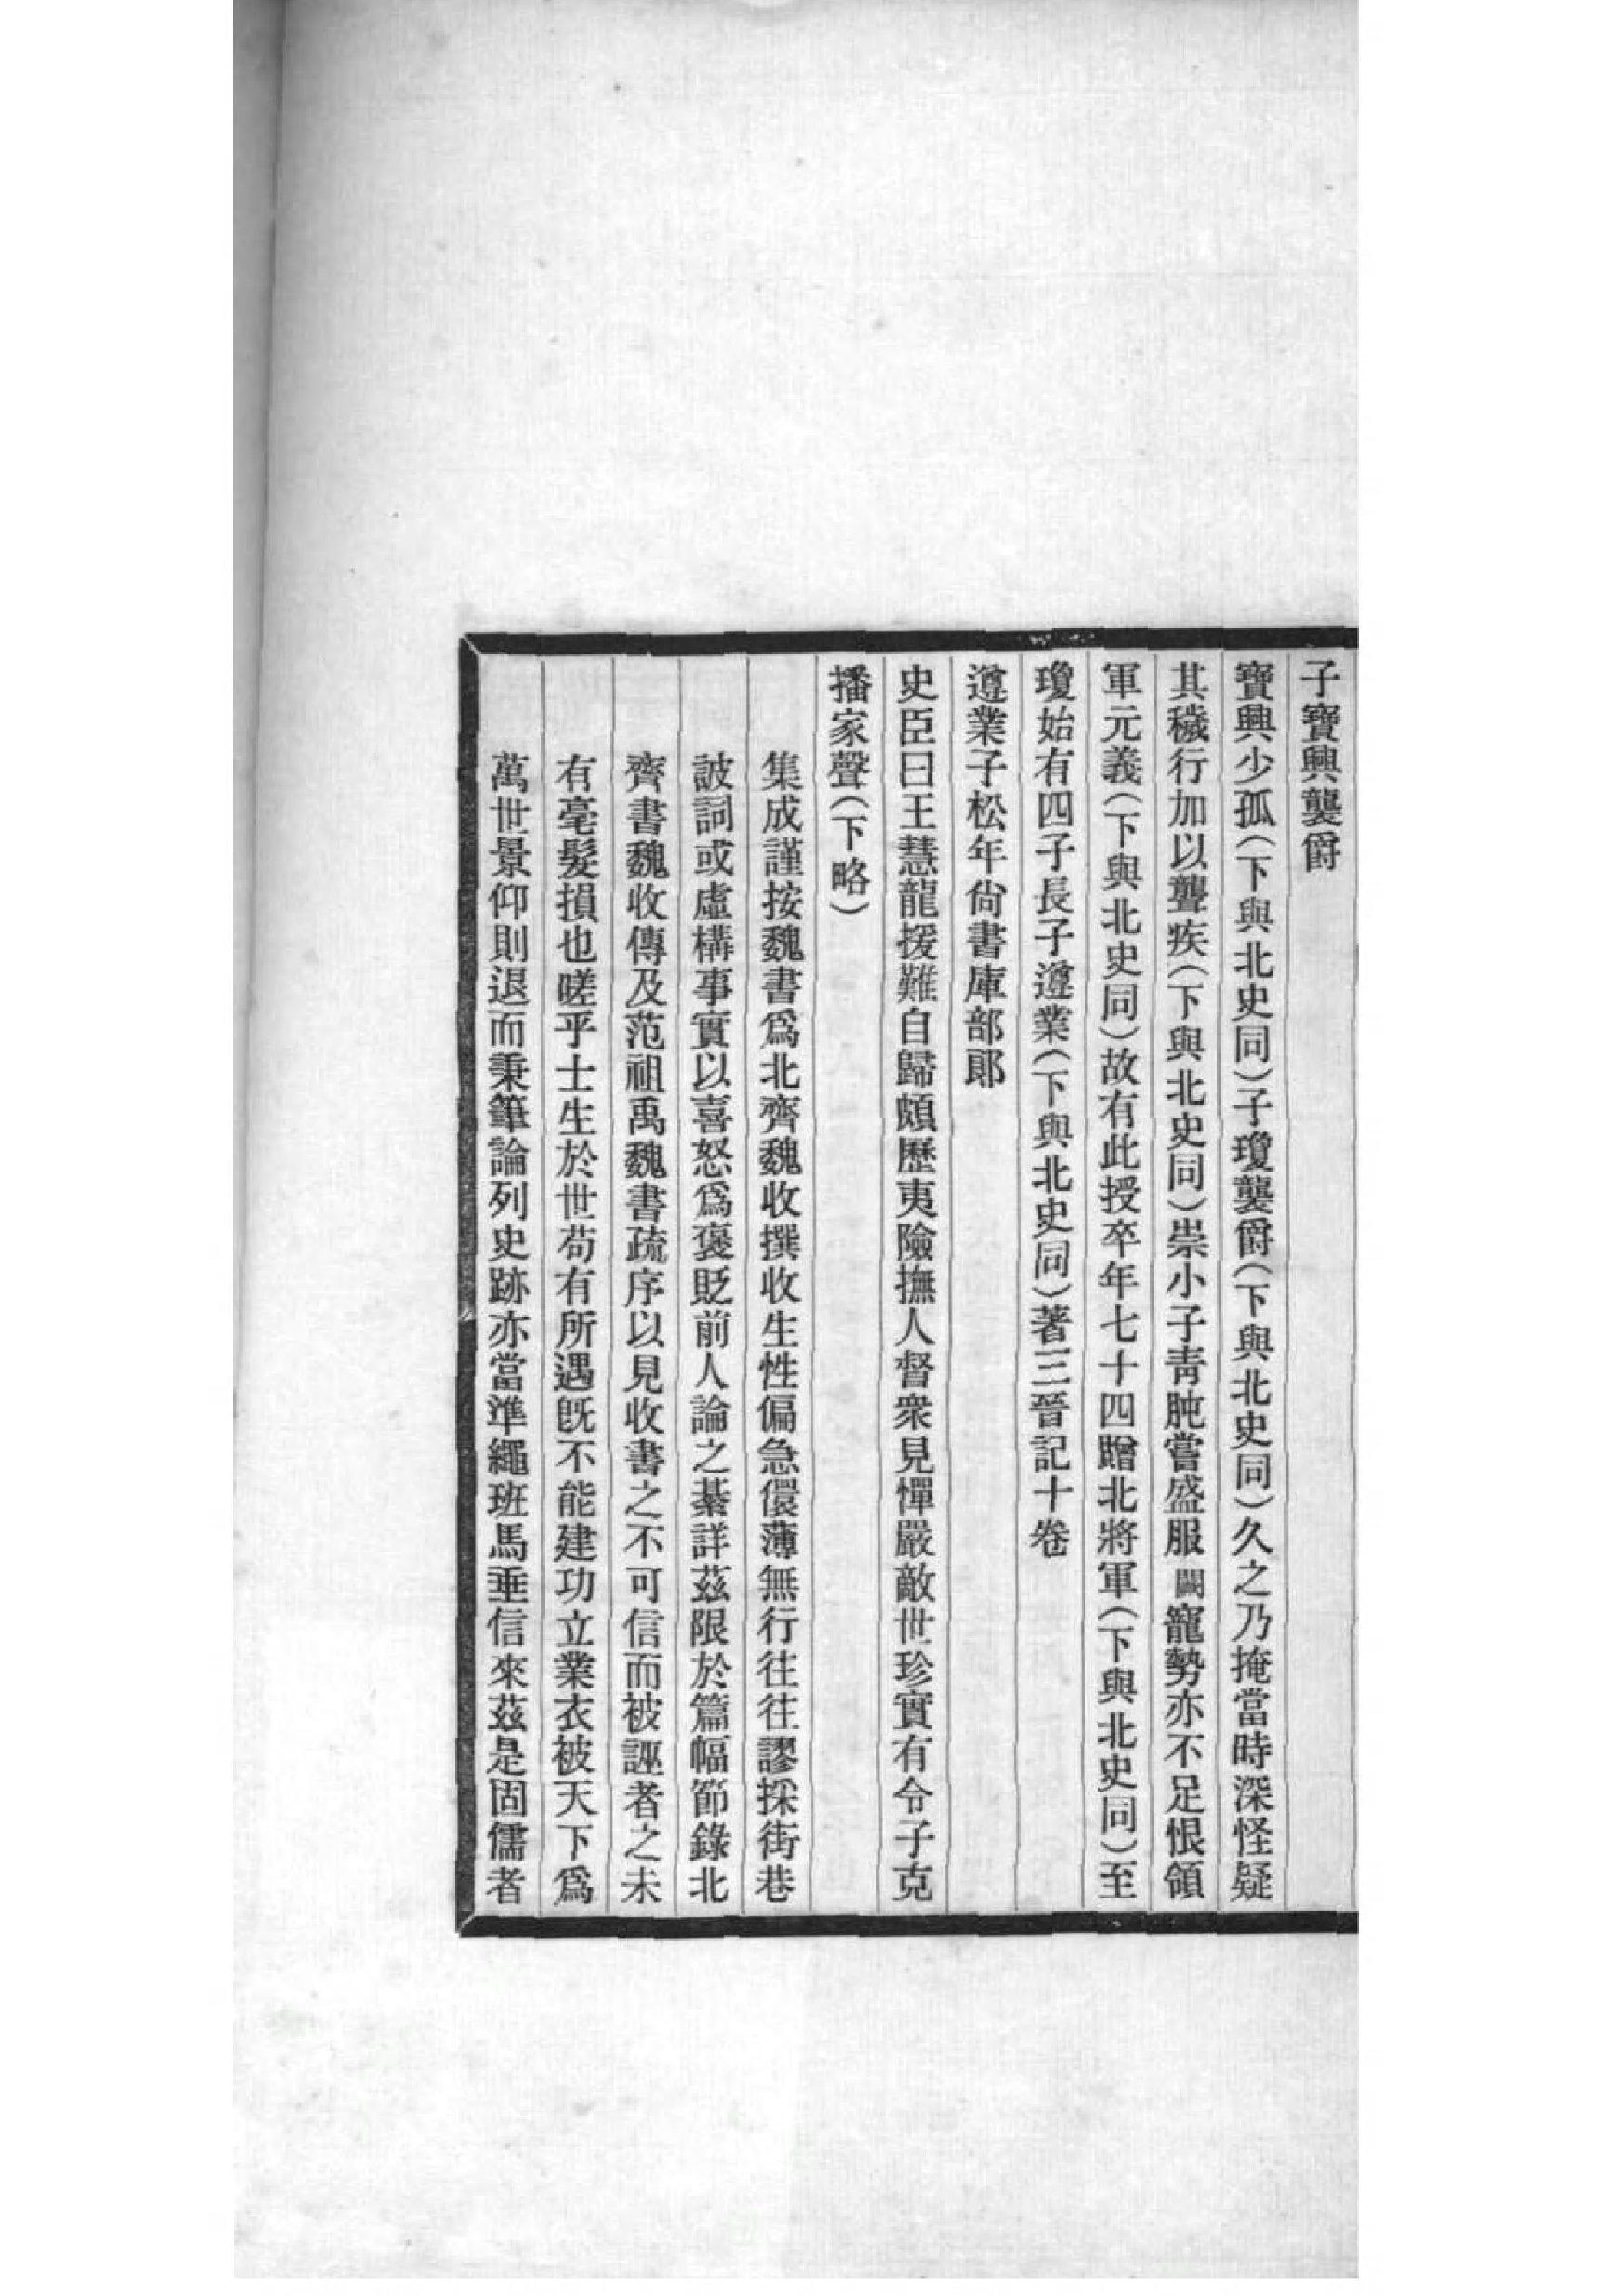 子寶興襲爵
寶興少孤（下與北史同）子瓊襲爵（下與北史同）久之乃掩當時深怪疑
其穢行加以聾疾（下與北史同）崇小子靑肫嘗盛服闕寵勢亦不足恨領
軍元義（下與北史同）故有此授卒年七十四贈北將軍（下與北史同）至
瓊始有四子長子遵業（下與北史同）著三晉記十卷
遵業子松年尙書庫部郎
史臣曰王慧龍援難自歸頗歷夷險撫人督衆見憚嚴敵世珍實有令子克
播家聲（下略）
集成謹按魏書爲北齊魏收撰收生性偏急儇薄無行往往謬採街巷
詖詞或虛構事實以喜怒爲褒貶前人論之綦詳茲限於篇幅節錄北
齊書魏收傳及范祖禹魏書疏序以見收書之不可信而被誣者之未
有毫髮損也嗟乎士生於世苟有所遇旣不能建功立業衣被天下爲
萬世景仰則退而秉筆論列史跡亦當準繩班馬垂信來茲是固儒者